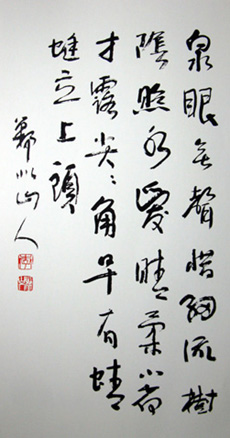 泉眼無聲惜細流樹
陰照水愛晴柔小荷
才露尖尖角早有蜻
蜓立上頭
鄭山人